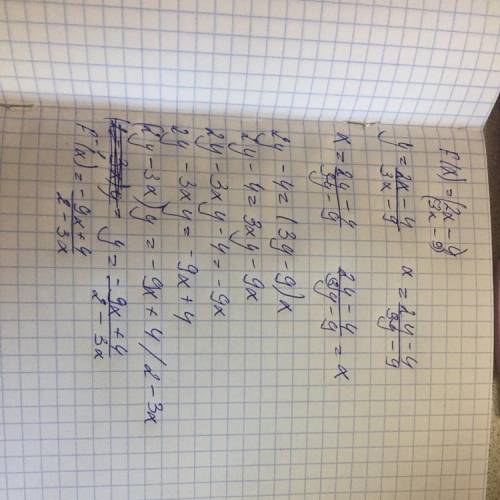 f(x) = (2x - 4 / 3x - 9)
y = 2x - 4 / 3x - 9    x = 2y - 4 / 3y - 9
x = 2y - 4 / 3y - 9    2y - 4 / 3y - 9 = x
2y - 4 = (3y - 9)x
2y - 4 = 3xy - 9x
2y - 3xy - 4 = -9x
2y - 3xy = -9x + 4
(2y - 3x)y = -9x + 4 / 2 - 3x
y = -9x + 4 / 2 - 3x
f⁻¹(x) = -9x + 4 / 2 - 3x